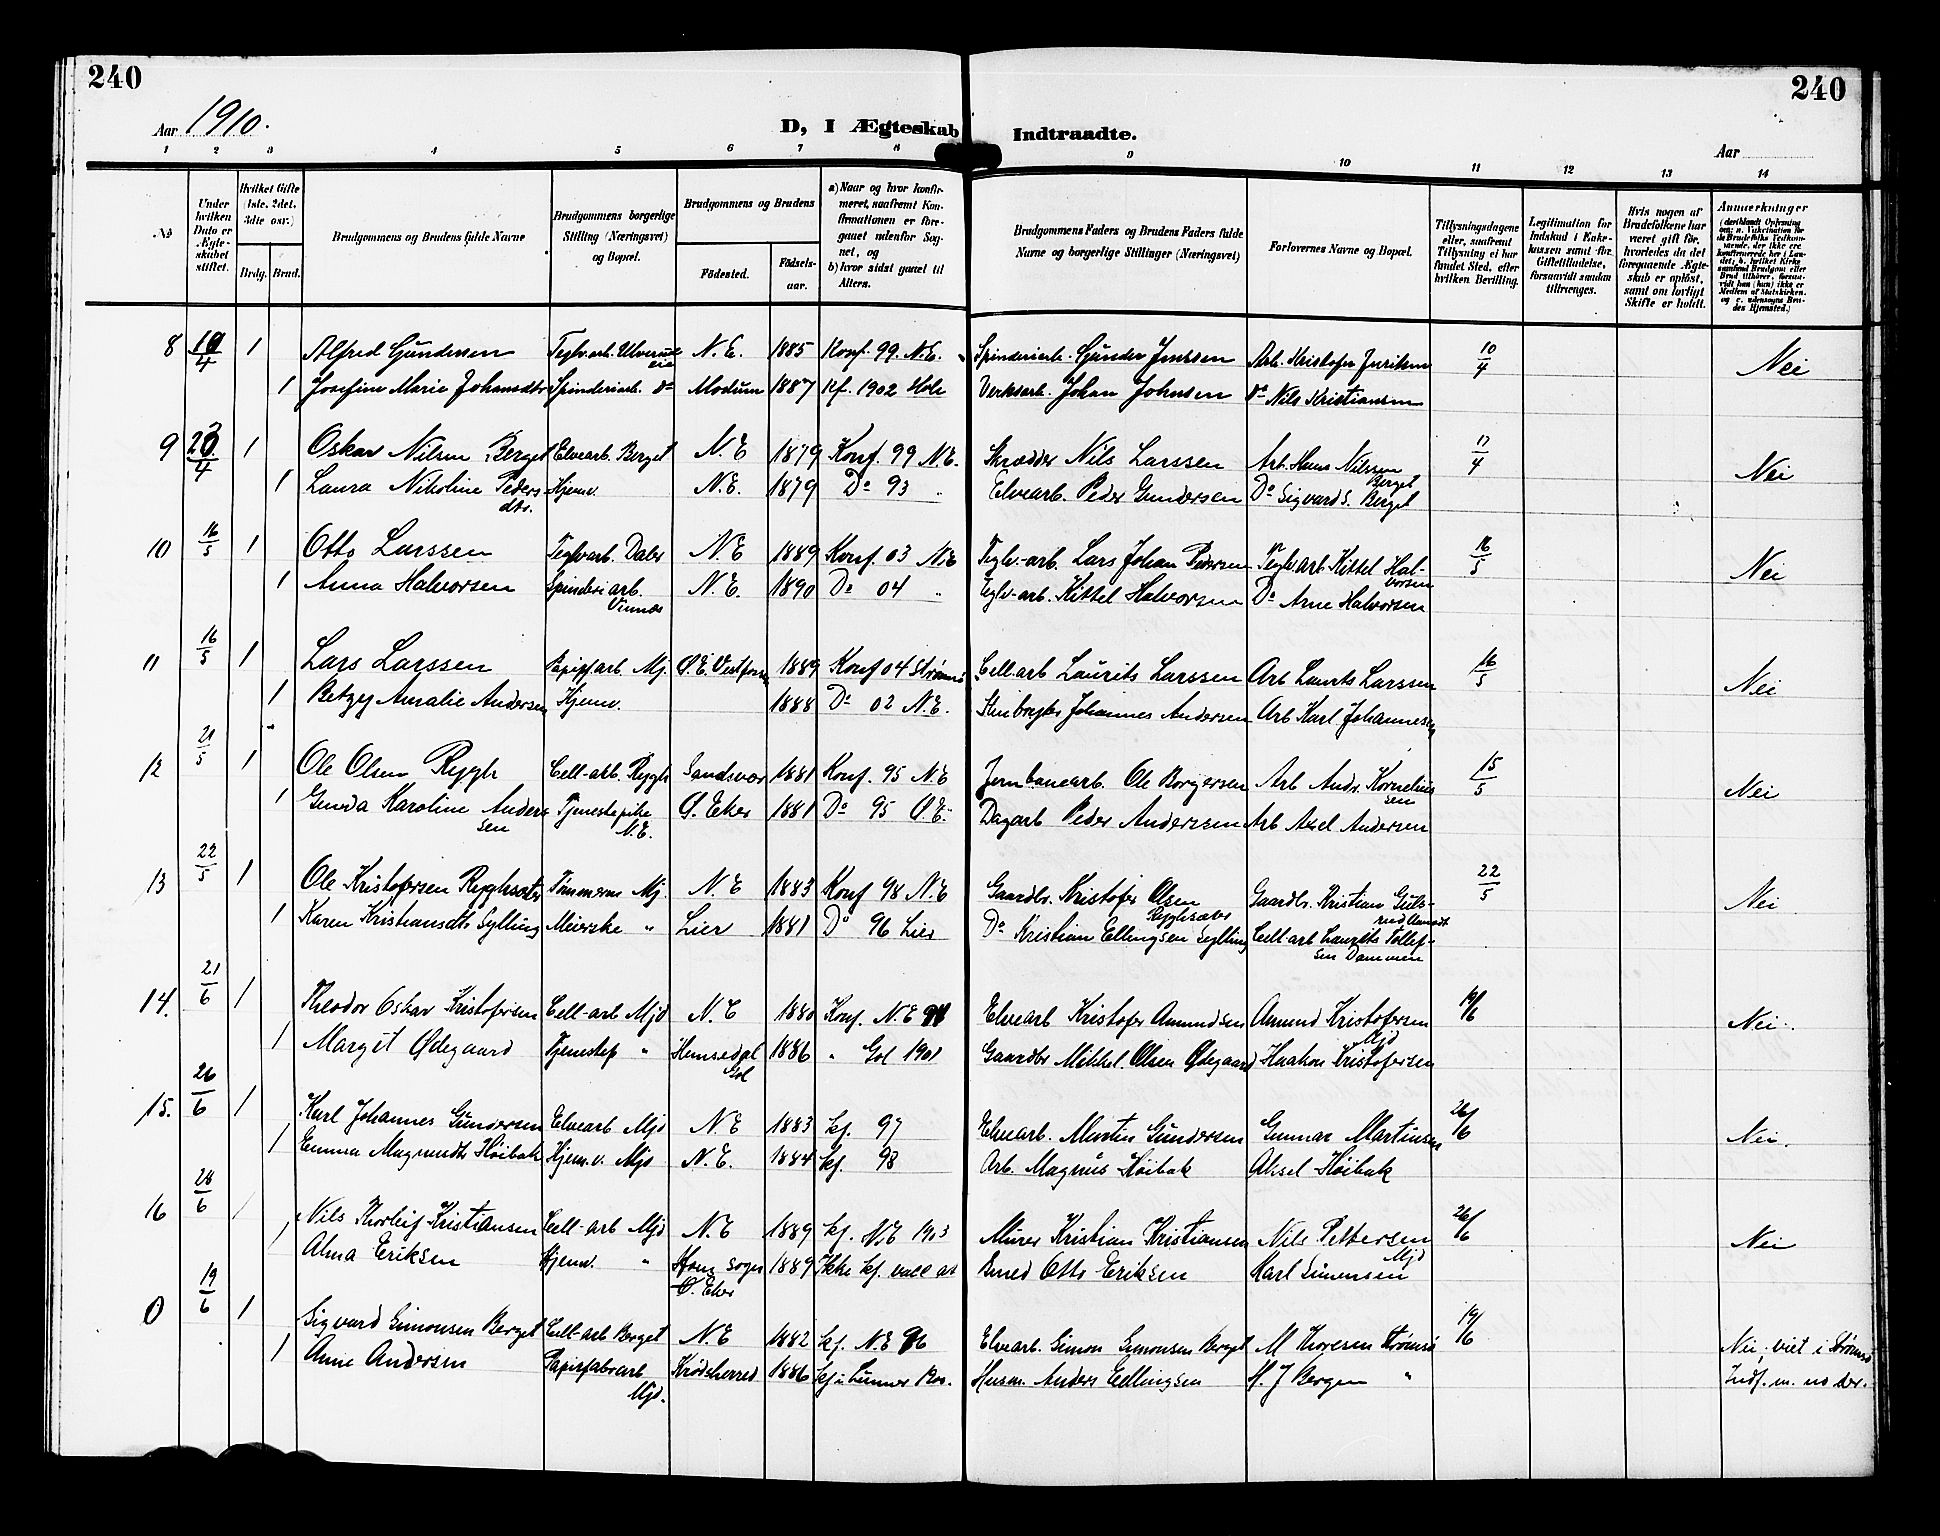 240
240
Aar 1910.
D, I Ægteskab Indtraadte.
Aar
1 2 3 4 5 6 7 8 9 10 11 12 13 14
No
Under hvilken Dato er Ægteskabet stiftet.
Hvilket Gifte (1ste, 2det, 3die osv.)
Brdg. Brud.
Brudgommens og Brudens fulde Navne
Brudgommens borgerlige Stilling (Næringsvei) og Bopæl.
Brudgommens og Brudens
Fødested.
Fødselsaar.
a) Naar og hvor konfirmeret, saafremt Konfirmationen er foregaaet udenfor Sognet, og
b) hvor sidst gaaet til Alters.
Brudgommens Faders og Brudens Faders fulde Navne og borgerlige Stillinger (Næringsvei)
Forlovernes Navne og Bopæl.
Tillysningsdagene eller, saafremt Tillysning ei har fundet Sted, efter hvilken Bevilling.
Legitimation for Indskud i Enkekassen samt for Giftetilladelse, forsaavidt saadan tiltrænges.
Hvis nogen af Brudefolkene har været gift før, hvorledes da det foregaaende Ægteskab er opløst, samt om lovligt Skifte er holdt.
Anmærkninger
8 10/4 1 Alfred Gundersen Teglv.arb. Ulverudeie N.E. 1885 Konf. 99. N.E. Spinderiarb. Gunder Jenssen Arb. Kristofer Juriksen 10/4 Nei
1 Josefine Marie Johansdtr Spinderiarb. do Modum 1887 Kf. 1902 Hole Verksarb. Johan Johnsen do Nils Kristiansen
9 23/4 1 Oskar Nilsen Berget Elvearb. Berget N.E 1879 Konf. 99 N.E. Skrædder Nils Larssen Arb. Hans Nilssen Berget 17/4 Nei
1 Laura Nikoline Pedersdtr. Hjemv. N.E. 1879 Do 93 " Elvearb. Peder Gundersen Do Sigvard S. Berget
10 16/5 1 Otto Larssen Teglvarb. Daler N.E 1889 Konf. 03 N.E Teglv.-arb. Lars Johan Pedersen Teglv.arb Kittel Halvorsen 16/5 Nei
1 Anna Halvorsen Spinderiarb. Vinnæs N.E. 1890 Do 04 " Teglv-arb. Kittel Halvorsen Do Arne Halvorsen
11 16/5 1 Lars Larssen Papirfarb. Mj. Ø.E. Vestfossen 1889 Konf 04 Strømsø Cell-arb Laurits Larssen Arb Laurits Larssen 16/5 Nei
1 Betzy Amalie Andersen Hjemv. 1888 Do 02 N.E. Stenbryter Johannes Andersen Arb Karl Johannesen
12 21/5 1 Ole Olsen Rygh Cell-arb. Rygh Sandsvær 1881 Konf. 95 N.E Jernbanearb. Ole Borgersen Arb Andr. Korneliussen 15/5 Nei
1 Gunda Karoline Anderssen Tjenestepike N.E. Ø. Eker 1881 Do 95 Ø.E. Dagarb Peder Anderssen Arb Axel Andersen
13 22/5 1 Ole Kristofersen Ryghsæter Tømmerm Mj. N.E 1883 Konf 98 N.E Gaardbr. Kristofer Olsen Ryghsæter Gaardbr. Kristian Gulsrud 22/5 Nei
1 Karen Kristiansdtr Sylling Meierske " Lier 1881 Do 96 Lier Do Kristian Ellingsen Sylling Cell-arb Laurits Tollefsen Dammen
14. 21/6 1 Theodor Oskar Kristofersen Cell-arb Mjd N.E 1880 Konf. N.E 94 Elvearb Kristofer Amundsen Amund Kristofersen Mjd 19/6 Nei.
1 Margit Ødegaard Tjenestep " Hemsedal Gol 1886 " Gol 1901 Gaardbr Mikkel Olsen Ødegaard Haakon Kristofersen
15. 26/6 1 Karl Johannes Gundersen Elvearb Mjd N.E 1883 kf. 97 Elvearb. Martin Gundersen Gunnar Martinsen 26/6 Nei.
1 Emma Magnusdtr Høibak Hjem.v. Mjd N.E. 1884 kf. 98 Arb. Magnus Høibak Aksel Høibak
16 28/6 1 Nils Thorleif Kristiansen Cell-arb Mjd N.E 1889 kf. N.E 1903 Murer Kristian Kristiansen Nils Pettersen Mjd 26/6 Nei
1 Alma Eriksen Hjemv. " sogn Ø. Eker 1889 Ikke kf. Otto Eriksen Karl Simensen
0 19/6 1 Sigvard Simonsen Berget Cell-arb Berget N.E 1882 kf. N.E 96 Elvearb. Simon Simonsen Berget M Thoresen Strømsø 19/6 Nei, viet i Strømsø
1 Anne Andersen Papirfabrarb Mjd. Krødsherred 1886 kf i Lunner Husm. Anders Ellingsen H. J Bergen " Indf. m. no der.